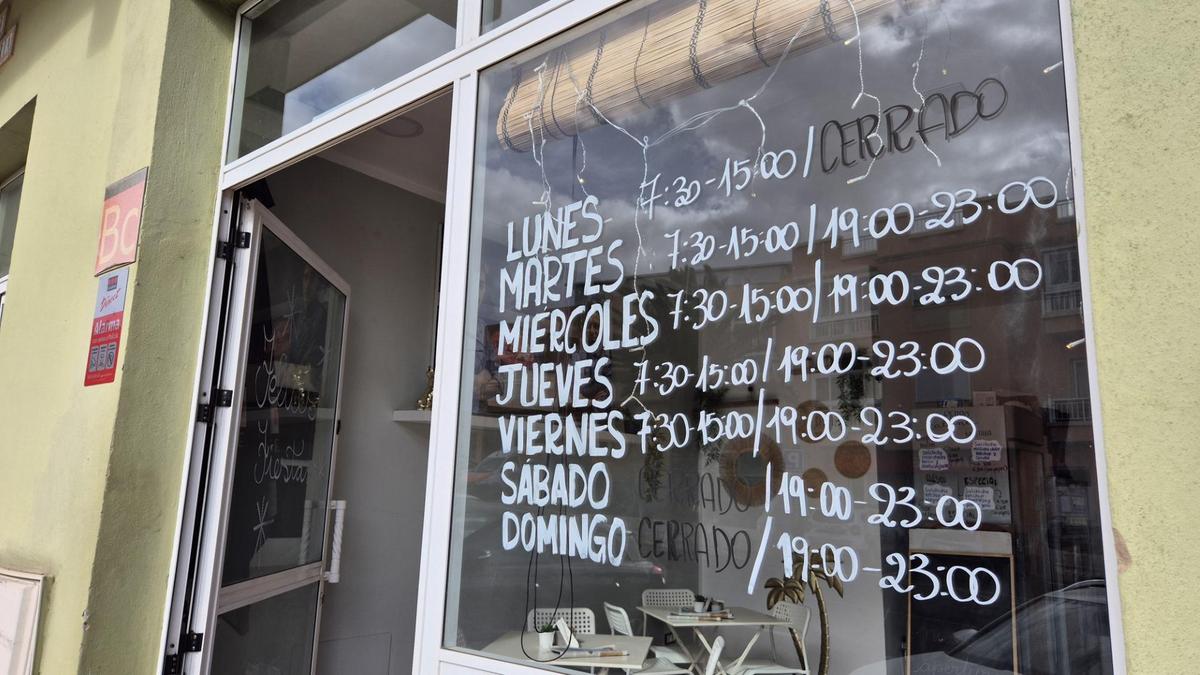 LUNES 7:30-15:00/CERRADO
MARTES 7:30-15:00/19:00-23:00
MIÉRCOLES 7:30-15:00/19:00-23:00
JUEVES 7:30-15:00/19:00-23:00
VIERNES 7:30-15:00/19:00-23:00
SÁBADO CERRADO /19:00-23:00
DOMINGO CERRADO /19:00-23:00
Bc
Direct
Alarma